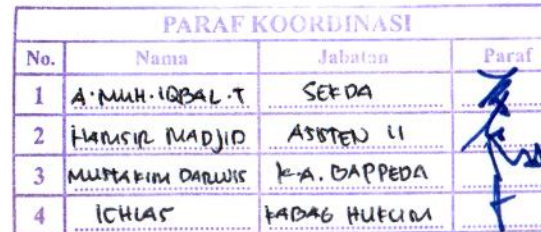 PARAF KOORDINASI
No. Nama Jabatan Paraf
1 A. MUH. IQBAL. T SEKDA
2 HAMSIR MADJID ASISTEN II
3 MUSTAKIM DARWIS K.A. BAPPEDA
4 ICHIAS KABAG HUKUM